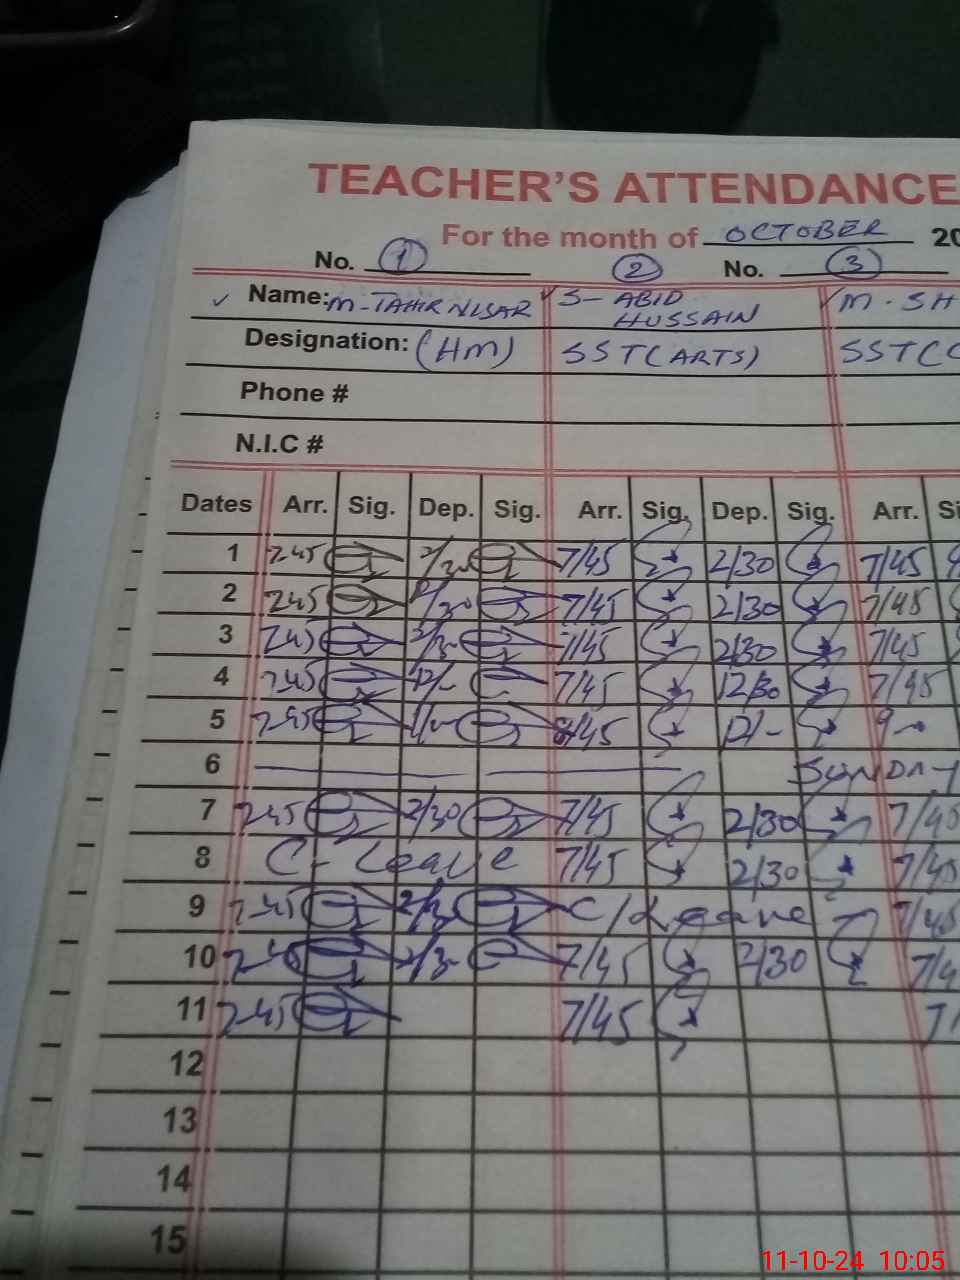 TEACHER'S ATTENDANCE
For the month of OCTOBER 20
No. 1 2 No. 3
Name: M-TAHIR NISAR S-ABID HUSSAIN M. SH
Designation: (HM) SST(ARTS) SST(C
Phone #
N.I.C #
Dates Arr. Sig. Dep. Sig. Arr. Sig. Dep. Sig. Arr. Si
1 7-45 2/30 7/45 2/30 7/45
2 7-45 7/45 2/30 7/45
3 7-45 7/45 2/30 7/45
4 7-45 12/- 7/45 12/30 7/45
5 7-45 /45 12/-
6 SUNDAY
7 7-45 2/30 7/45 2/30 7/45
8 C-Leave 7/45 2/30 7/45
9 7-45 2/30 C/Leave 7/45
10 7-45 2/30 7/45 2/30 7/4
11 7-45 7/45 7/
12
13
14
15
11-10-24 10:05